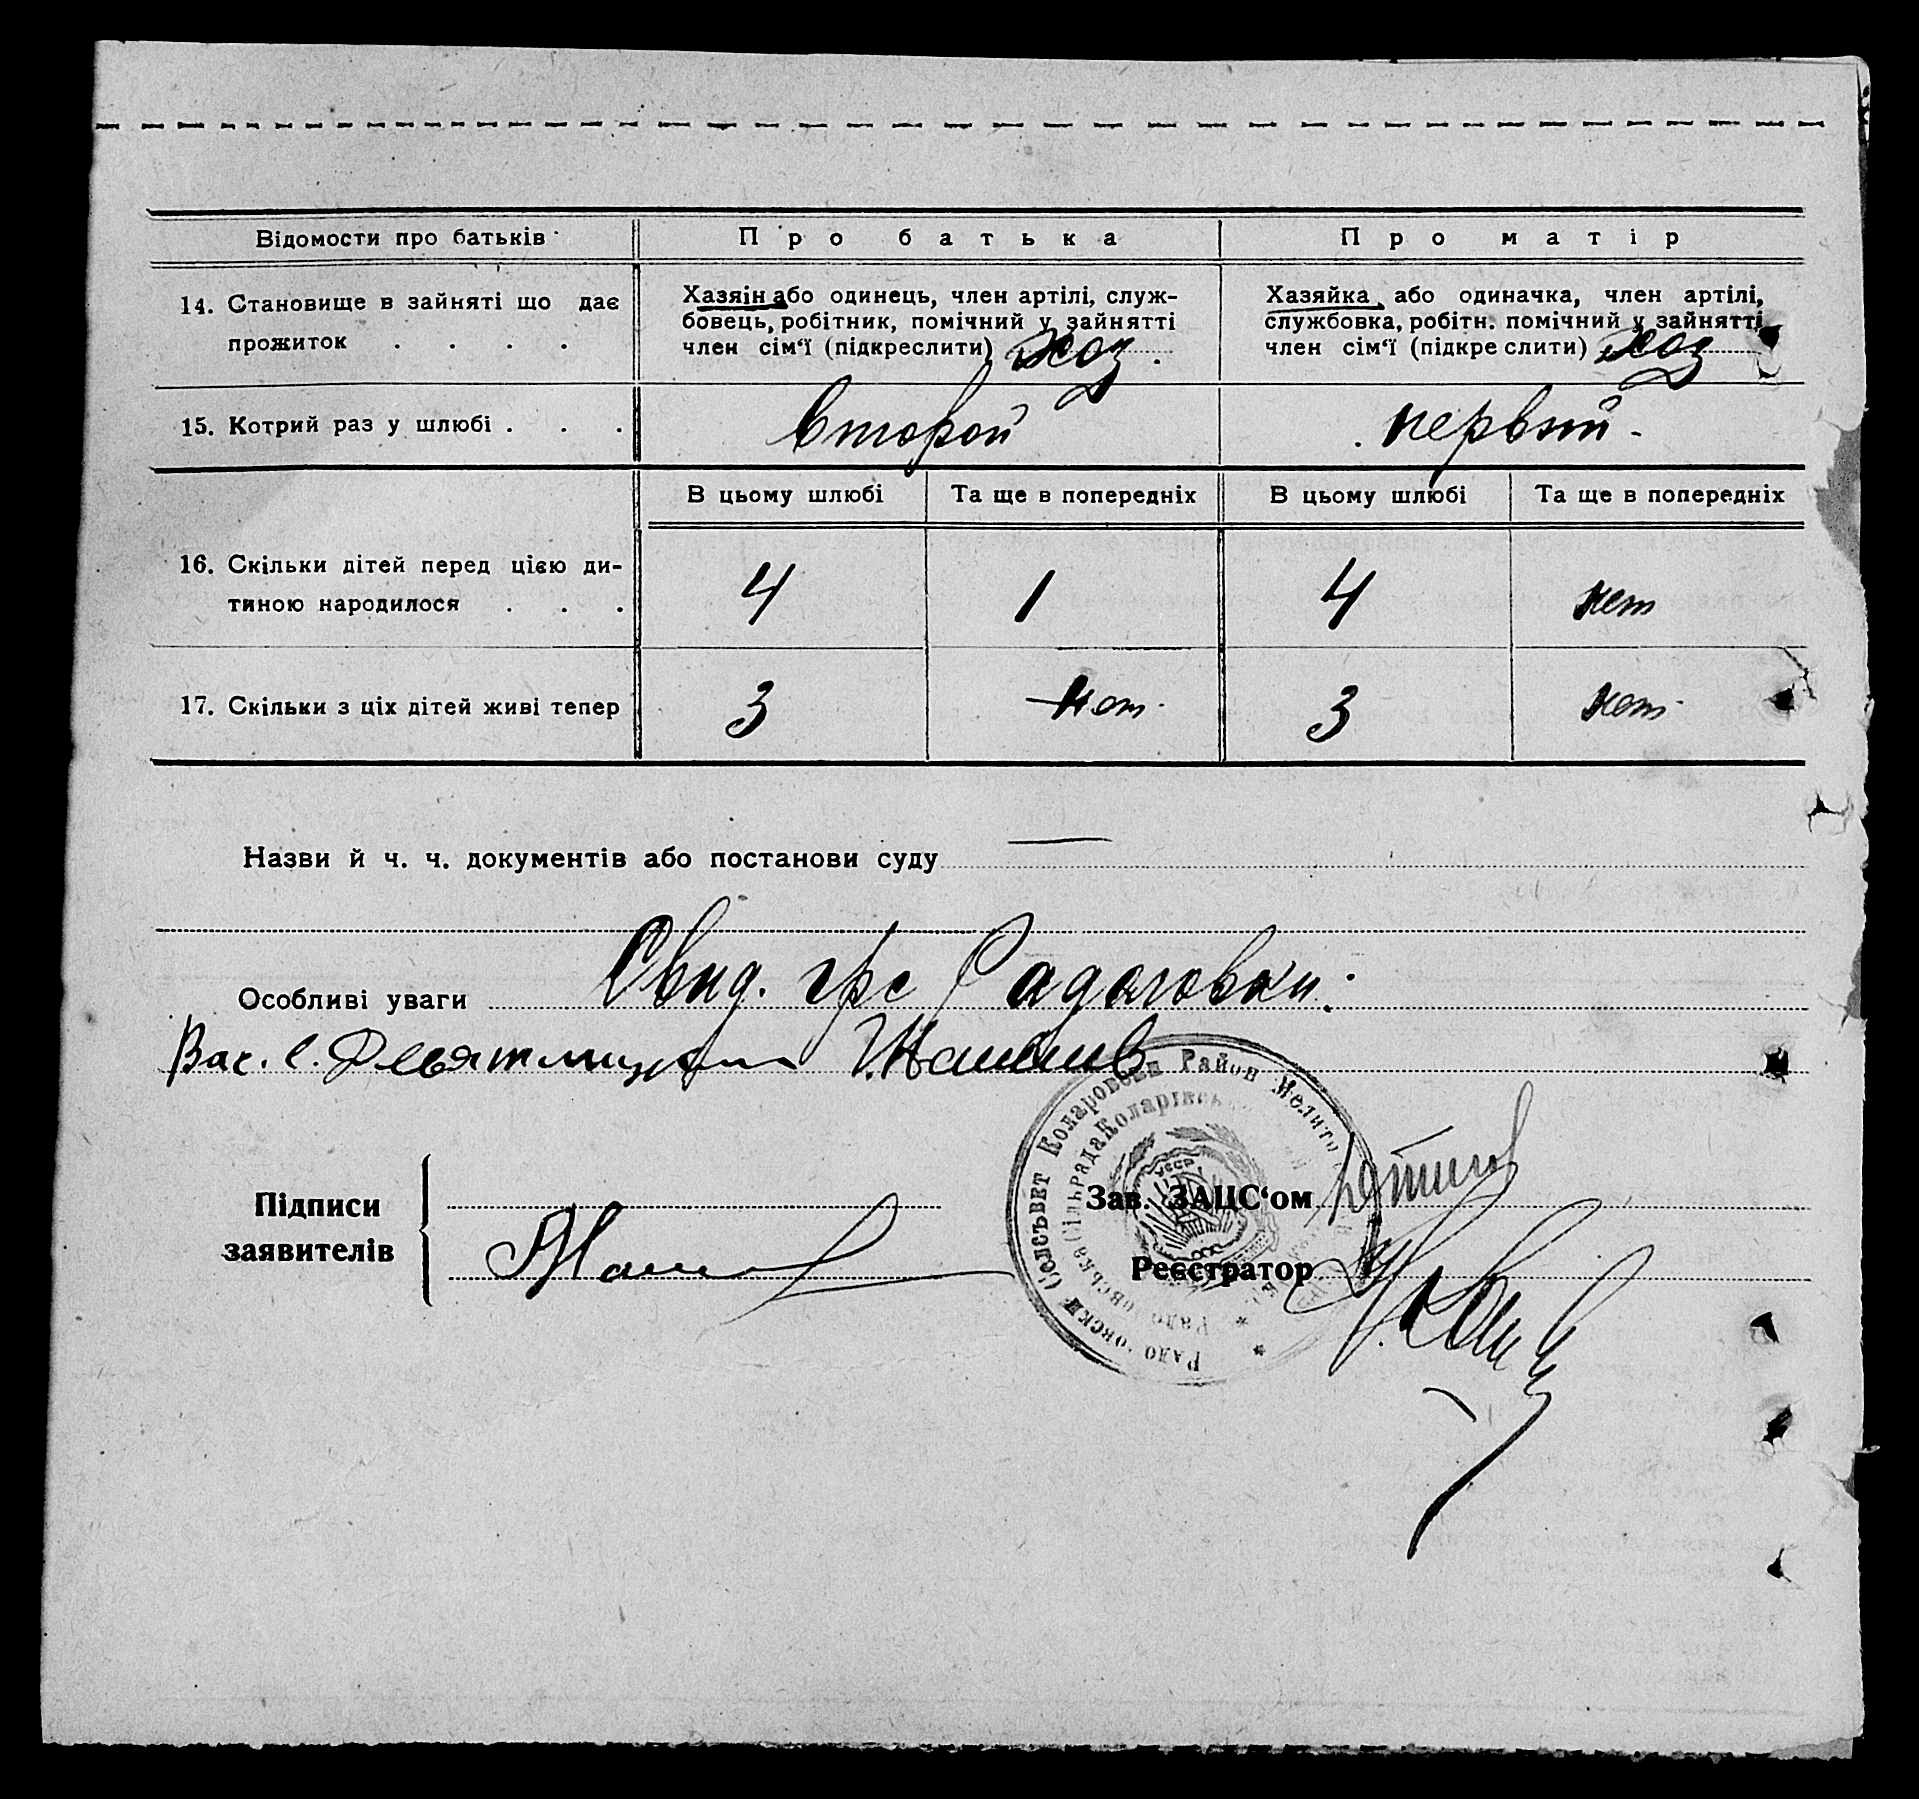 Відомости про батьків
Про батька
Про матір
14. Становище в зайняті що дає
прожиток . . . .
Хазяін або одинець, член артілі, служ-
бовець, робітник, помічний у зайнятті
член сім‘ї (підкреслити) хоз.
Хазяйка або одиначка, член артілі,
службовка, робітн. помічний у зайнятті
член сім‘ї (підкре слити) хоз
15. Котрий раз у шлюбі . . .
второй
первый -
В цьому шлюбі
Та ще в попередніх
В цьому шлюбі
Та ще в попередніх
16. Скільки дітей перед цією ди-
тиною народилося . . .
4
1
4
нет
17. Скільки з ціх дітей живі тепер
3
нет
3
нет
Назви й ч. ч. документів або постанови суду
Особливі уваги Свид. гре
Вас.
Підписи
заявителів
Зав. ЗАЦС‘ом
Реєстратор
Сельсьвет Коларовски Район Мелито
УССР